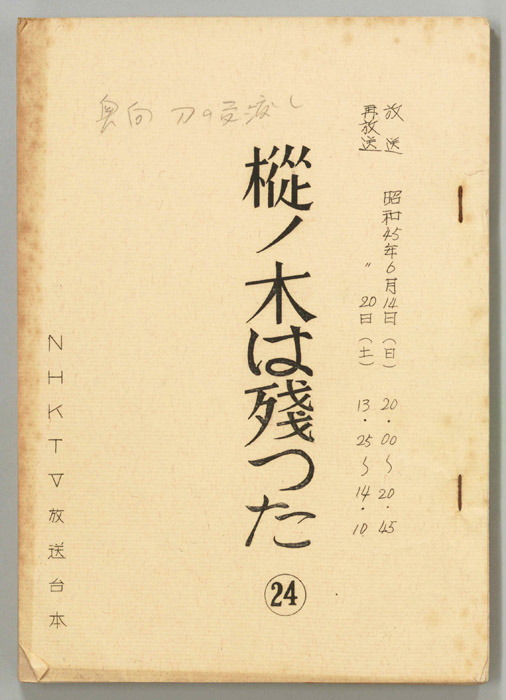 放送 昭和45年6月14日(日) 20・00〜20・45
再放送 〃 20日(土) 13・25〜14・10
樅ノ木は残つた
24
奥向 刀の受渡し
NHKTV放送台本